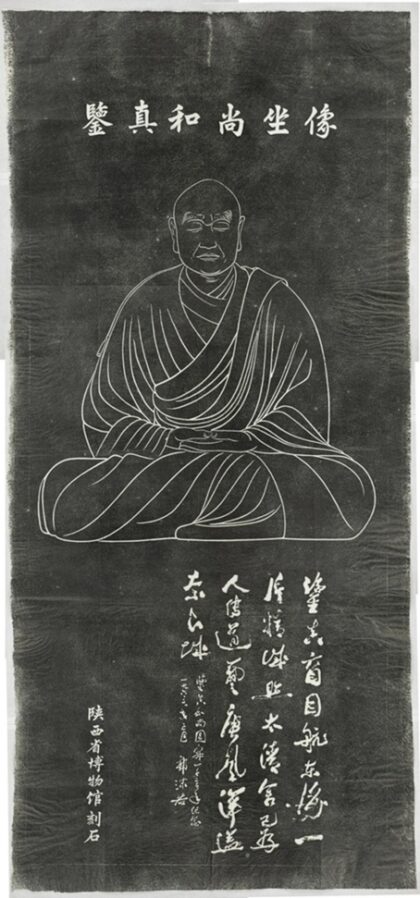 鑒真和尚坐像
鑒真盲目航东海一
片精誠照太清舍己为
人傳道藝唐風洋溢
奈良城
鑒真和尚圆寂一千二百年纪念
一九六三年 月 郭沫若
陝西省博物館刻石